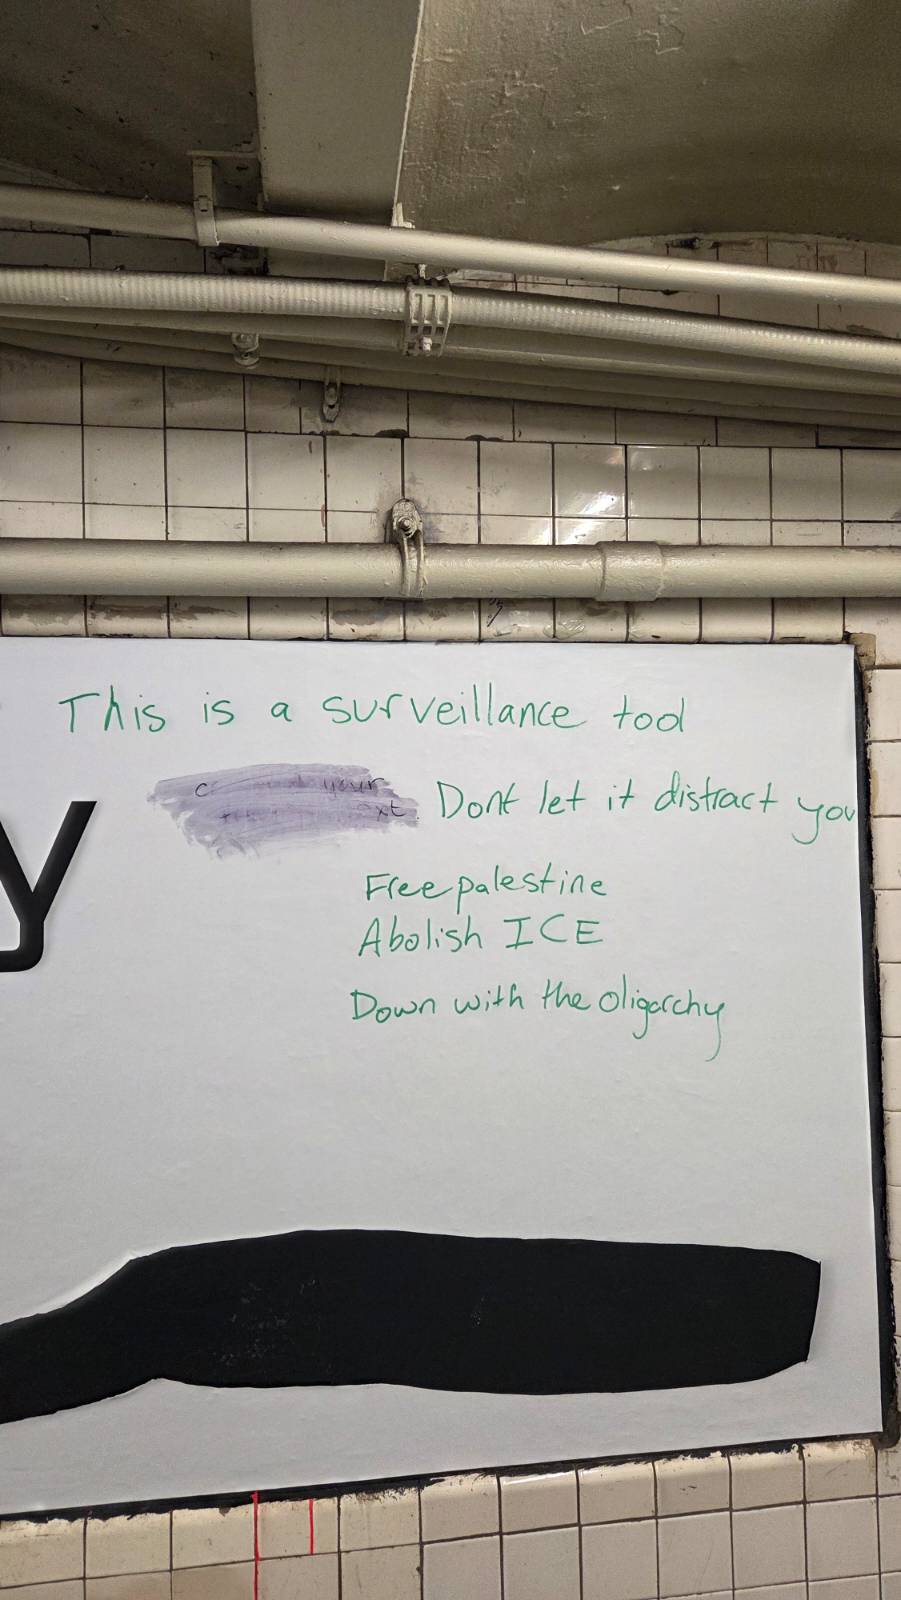 This is a surveillance tool
your
Dont let it distract you
y
Free palestine
Abolish ICE
Down with the oligarchy